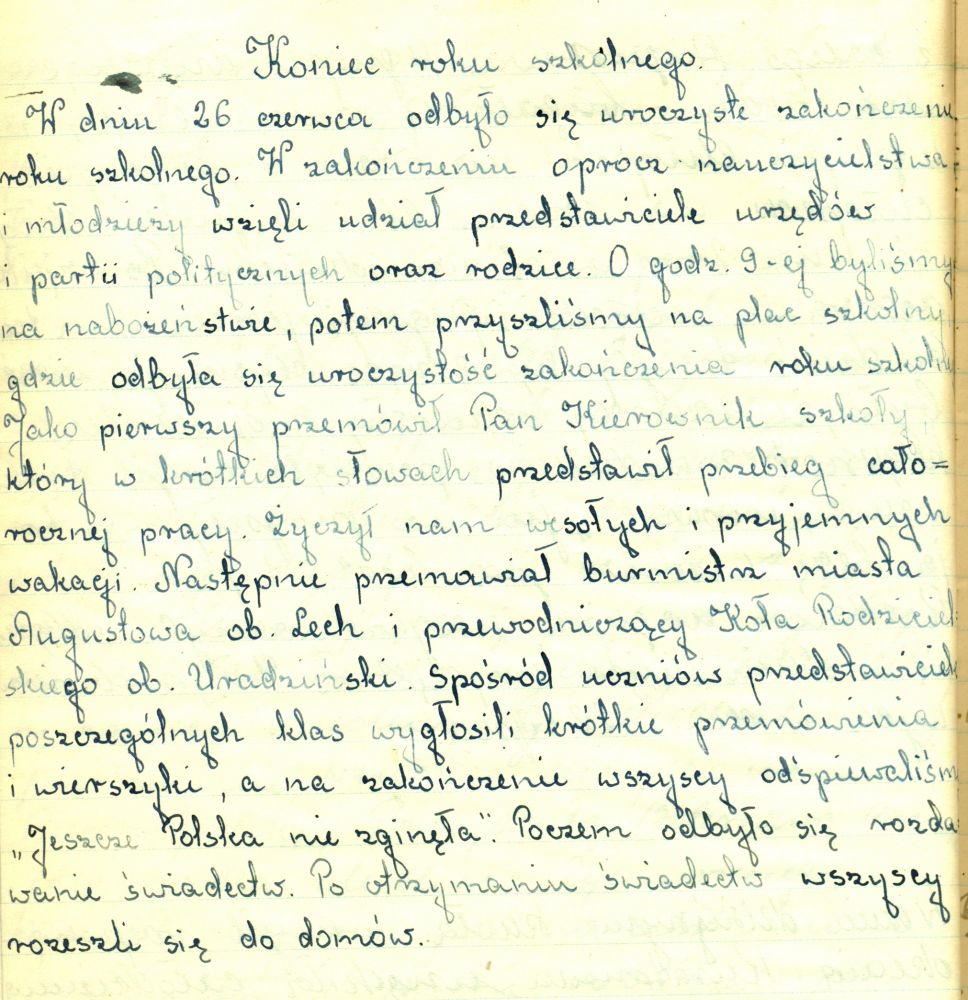 Koniec roku szkólnego.
W dniu 26 czerwca odbyło się uroczyste zakończeni
roku szkolnego. W zakończeniu oprocz nauczycielstwa
i młodzieży wzięli udział przedstawiciele urzędów
i partii politycznych oraz rodzice. O godz. 9-ej byliśmy
na nabożeństwie, potem przyszliśmy na plac szkolny,
gdzie odbyła się uroczystość zakończenia roku szkoln
Jako pierwszy przemówił Pan Kierownik szkoły,
który w krótkich słowach przedstawił przebieg cało=
rocznej pracy. Życzył nam wesołych i przyjemnych
wakacji. Następnie przemawiał burmistrz miasta
Augustowa ob. Lech i przewodniczący Koła Rodziciel
skiego ob. Uradziński. Spośród uczniów przedstawiciel
poszczególnych klas wygłosili krótkie przemówienia
i wierszyki, a na zakończenie wszyscy odśpiewaliśm
„Jeszcze Polska nie zginęła". Poczem odbyło się rozda
wanie świadectw. Po otrzymaniu świadectw wszyscy
rozeszli się do domów.